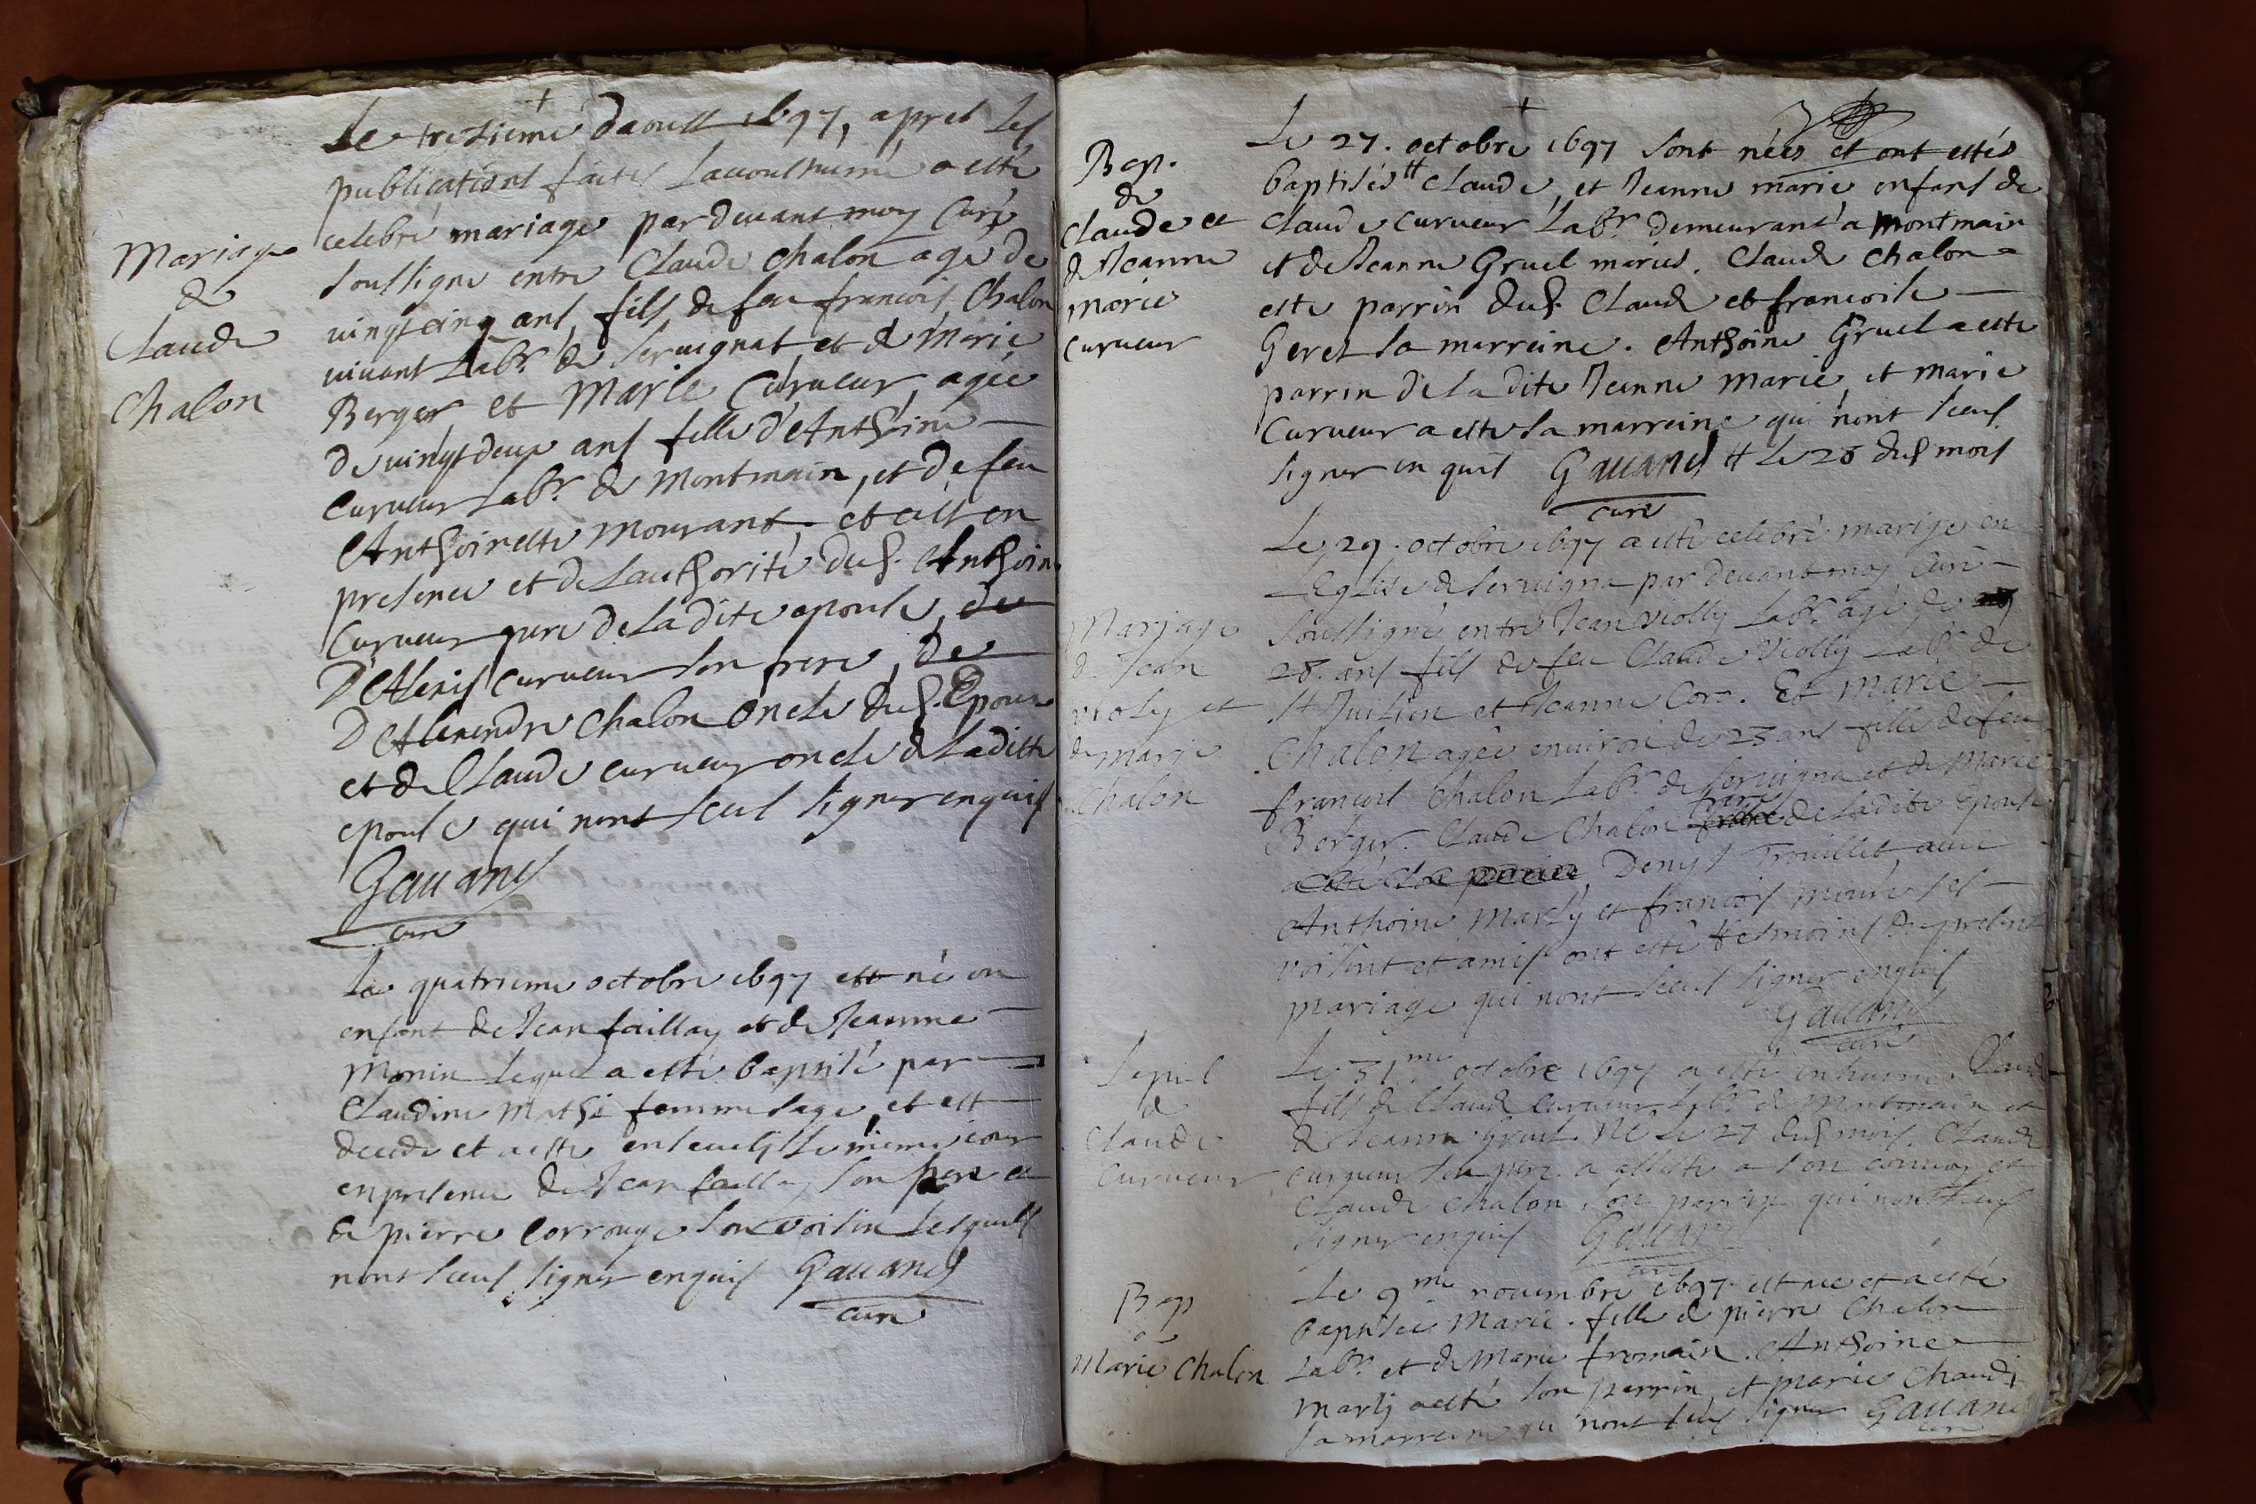 Mariage
de
Claude
Chalon
Le tresieme daoust 1697, apres les
publications faites lacoustumé a esté
celebré mariage pardevant moy Curé
soussigne entre Claude Chalon agé de
vingt cinq ans, fils de feu francois Chalon
vivant Labr. de servignat et de Marie
Berger et Marie Curveur agée
de vingt deux ans fille d'Anthoine
Curveur Labr. de Montmain, et de feu
Anthoinette Mourant. et cest en
presence et de Lauthorité dud. Anthoine
Curveur pere de Ladite epouse, de
D'Alexis Curveur son frere, de
D'Alexendre Chalon oncle dud. Epoux
et de Claude curveur oncle de Ladite
epouse qui nont sceus signer enquis
Gavand
curé
Le quatrieme octobre 1697 est né un
enfant de Jean faillay et de Jeanne
Monin lequel a esté baptisé par
Claudine Mathé femme sage, et est
decedé et a esté enseveli le mieme jour
en presence de Jean faillay son pere et
de pierre Corrouge son voisin lesquels
nont sceus signer enquis Gavand
curé
Bap.
de
Claude et
de Jeanne
marie
curveur
Le 27. octobre 1697 sont nées et ont estés
baptisés # Claude, et Jeanne marie enfans de
Claude curveur Labr. demeurant a Montmain
et de Jeanne Gruel mariés. Claude Chalon a
esté parrin dud. Claude et francoise
Geret sa marreine. Anthoine Gruel a esté
parrin de la dite Jeanne Marie et marie
Curveur a esté sa marreine qui nont sceus
signer en quis Gavand # Le 28 dud mois
curé
Mariage
de Jean
violy et
de marie
Chalon
Le 29. octobre 1697 a esté celebré mariage en
LEglise de servigna pardevant moy Curé
soussigné entre Jean violly Labr. agé de
28. ans fils de feu Claude violly Labr. de
St Julien et Jeanne Cor. Et marie
Chalon agée environ de 23 ans fille de feu
francois Chalon Labr. de servigna et de Marie
Berger. Claude Chalon frere de Ladite Epouse
Denys Trouillet, avec
Anthoine Marly et francois
voisins et amis ont esté tesmoins du present
mariage qui nont sceus signer enquis
Gavand
curé
Sepul
de
Claude
Curveur
Le 31me octobre 1697 a esté inhumé Claude
fils de Claude curveur Labr. de Montmain et
de Jeanne Gruel né le 27 dud mois. Claude
curveur son pere a assisté a son convoy et
Claude Chalon son parrin qui nont sceus
signer enquis Gavand
curé
Bap
de
Marie Chalon
Le 9me novembre 1697 est nee et a esté
baptisée Marie fille de pierre Chalon
Labr. et de Marie fromain. Anthoine
Marly a esté son parrin, et marie Chaudi
sa marreine qui nont sceus signer Gavand
curé